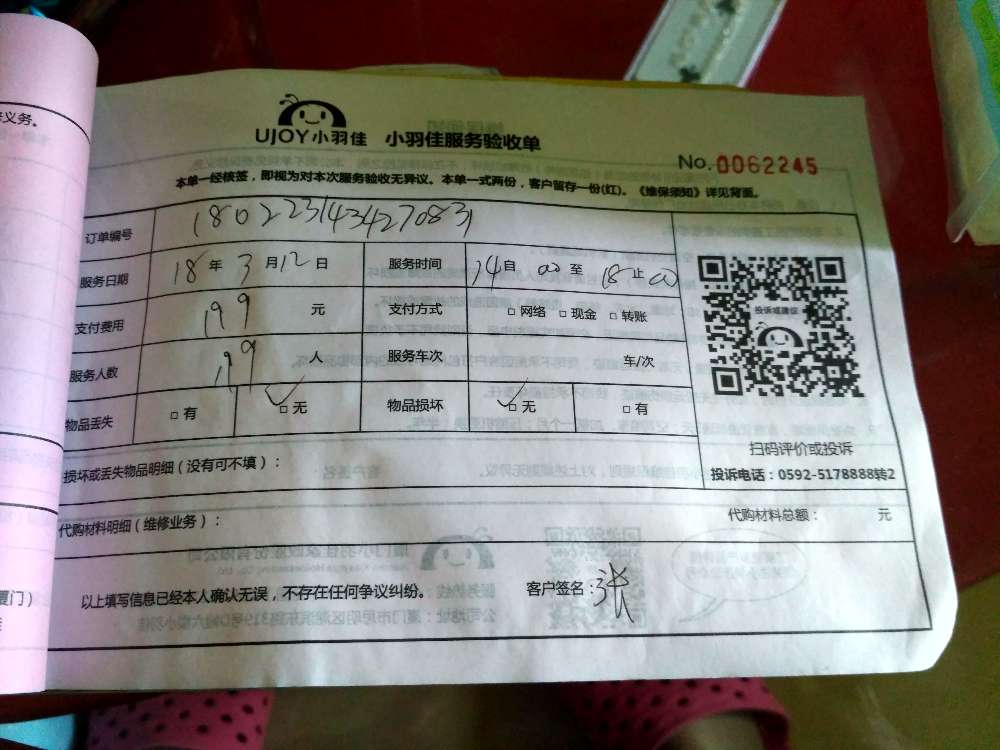 义务。
UJOY
UJOY小羽佳 小羽佳服务验收单
No.0062245
本单一经核签，即视为对本次服务验收无异议。本单一式两份，客户留存一份(红)。《维保须知》详见背面。
订单编号 180223143427083
服务日期 18年3月12日 服务时间 14自00至18止00
支付费用 199元 支付方式 □网络 □现金 □转账
投诉或建议
服务人数 人 服务车次 车/次
物品丢失 □有 ☑无 物品损坏 ☑无 □有
扫码评价或投诉
投诉电话：0592-5178888转2
损坏或丢失物品明细（没有可不填）：
代购材料明细（维修业务）： 代购材料总额： 元
厦门）
以上填写信息已经本人确认无误，不存在任何争议纠纷。 客户签名：张